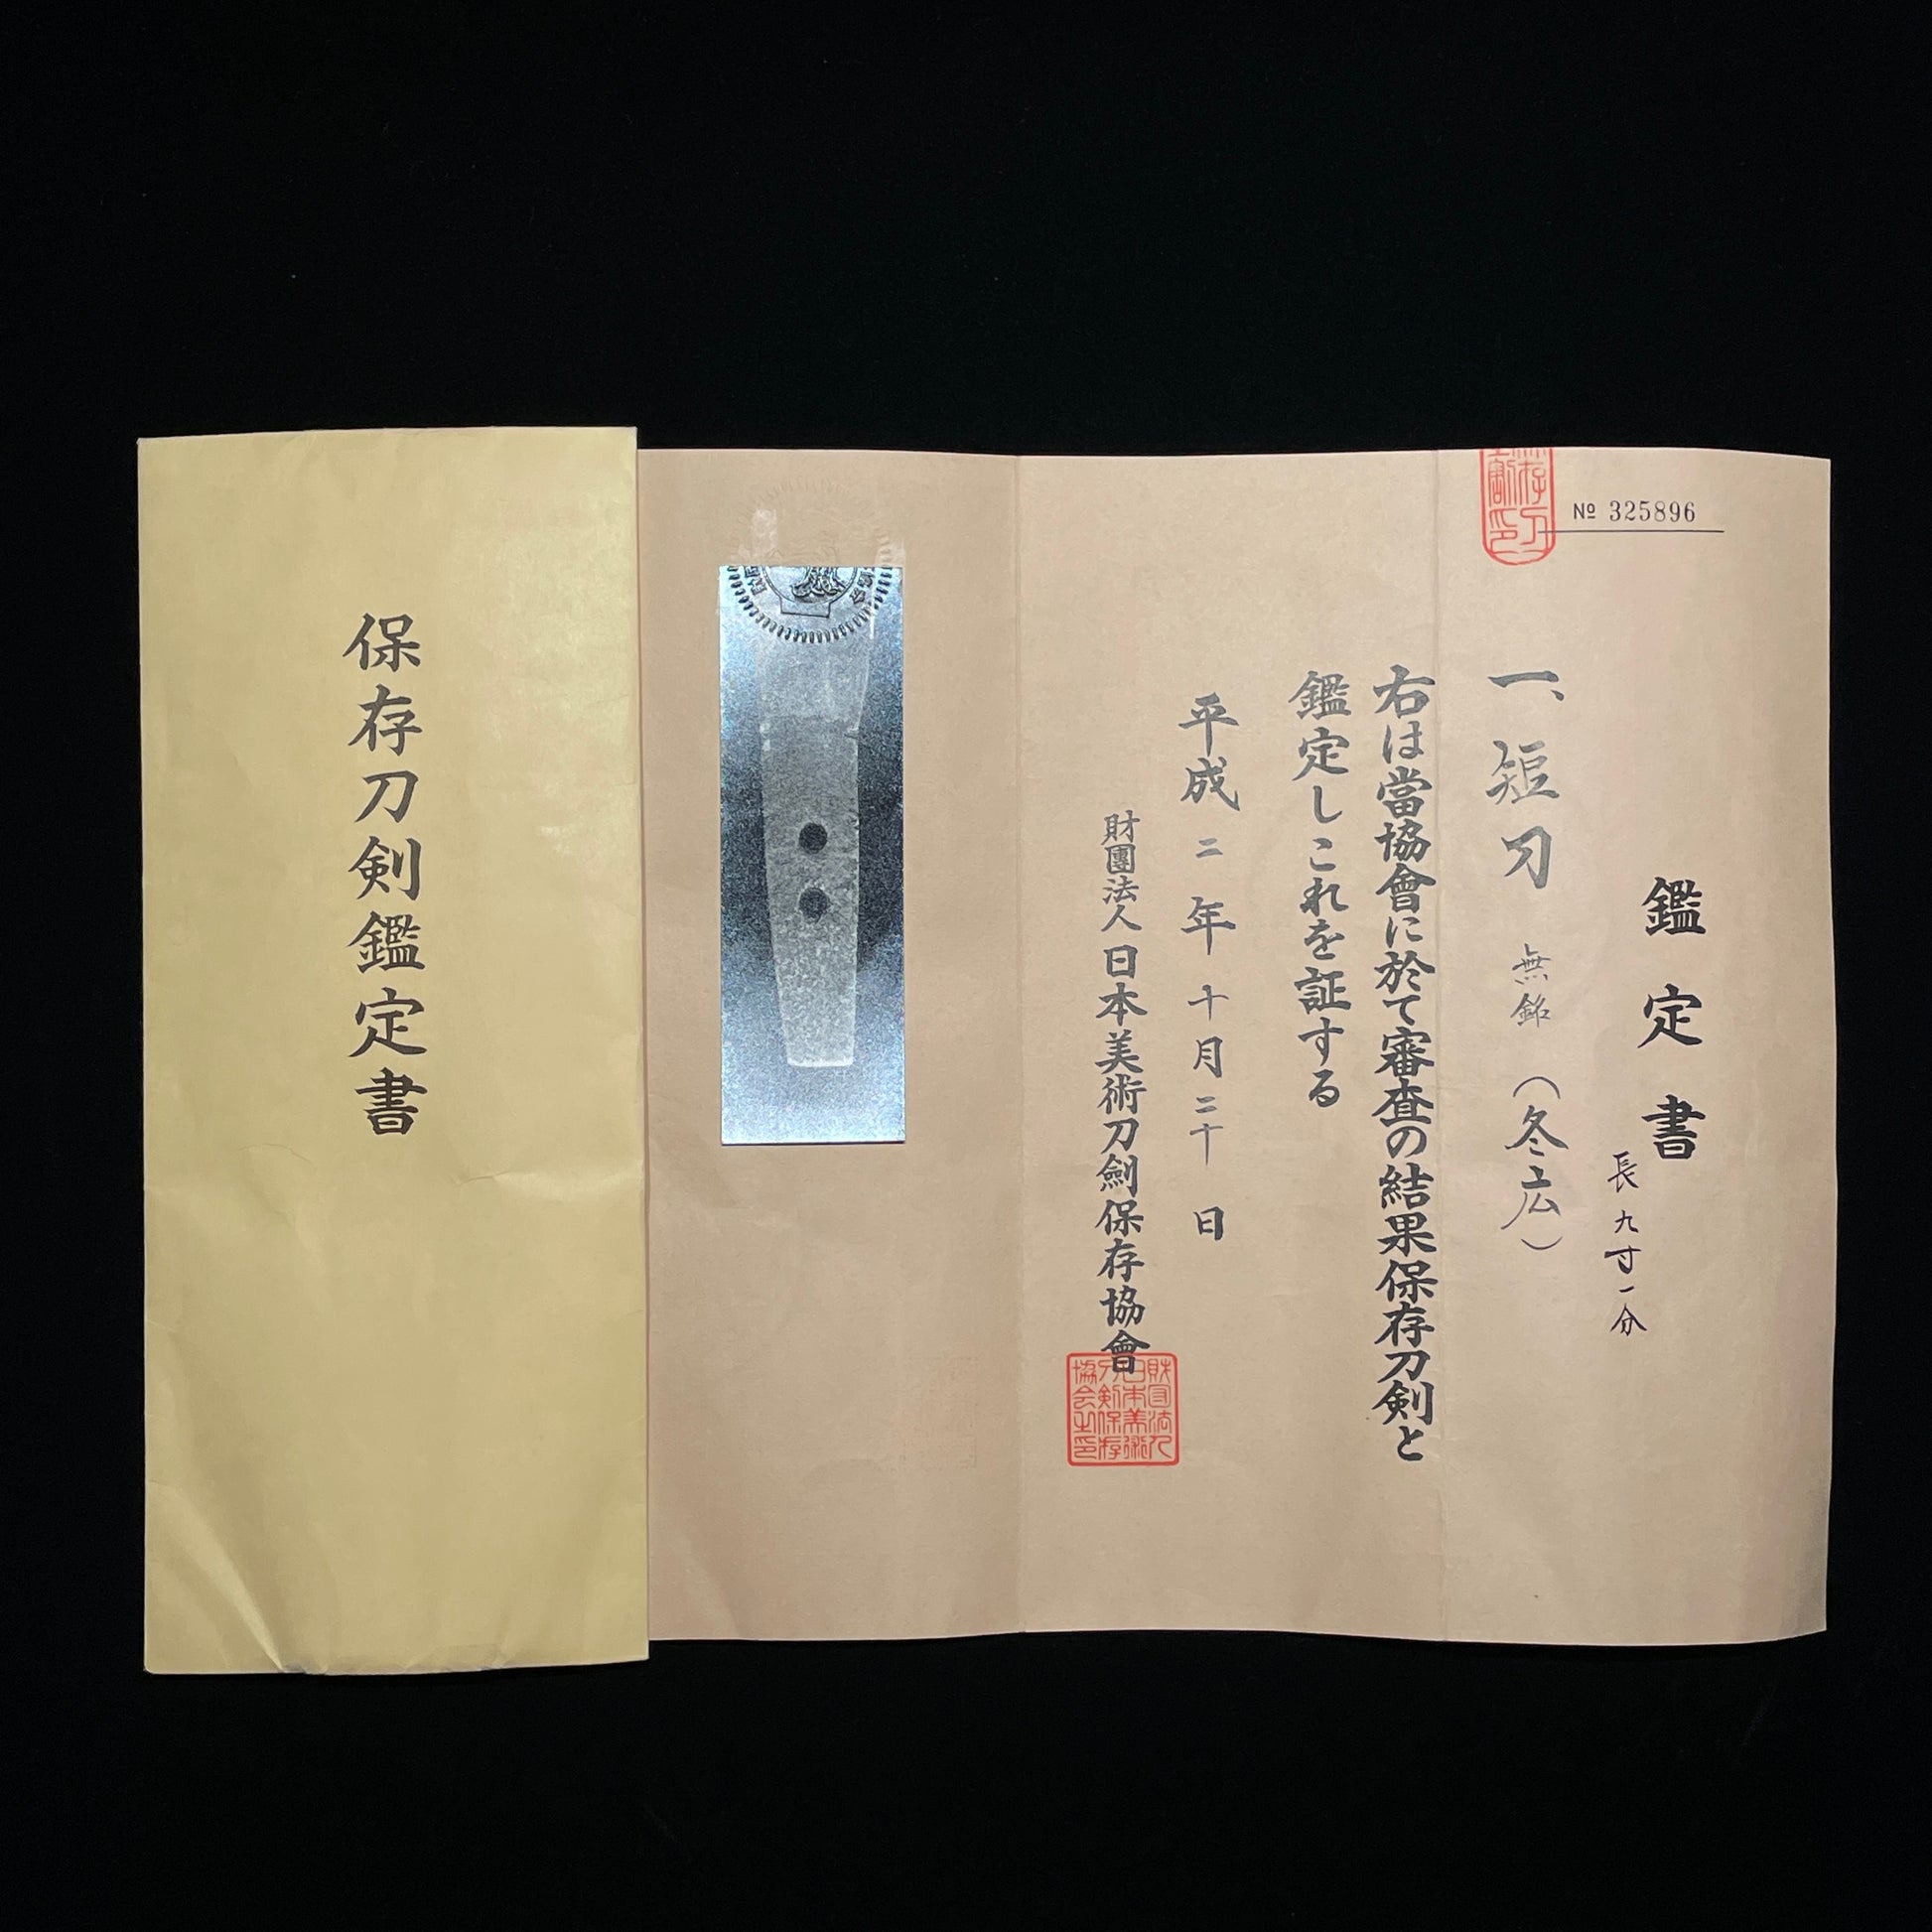 保存刀剣鑑定書
№ 325896
鑑定書
長九寸一分
一、短刀 無銘（冬広）
右は當協會に於て審査の結果保存刀剣と
鑑定しこれを証する
平成二年十月二十日
財團法人日本美術刀劍保存協會
財団法人
日本美術
刀剣保存
協会之印